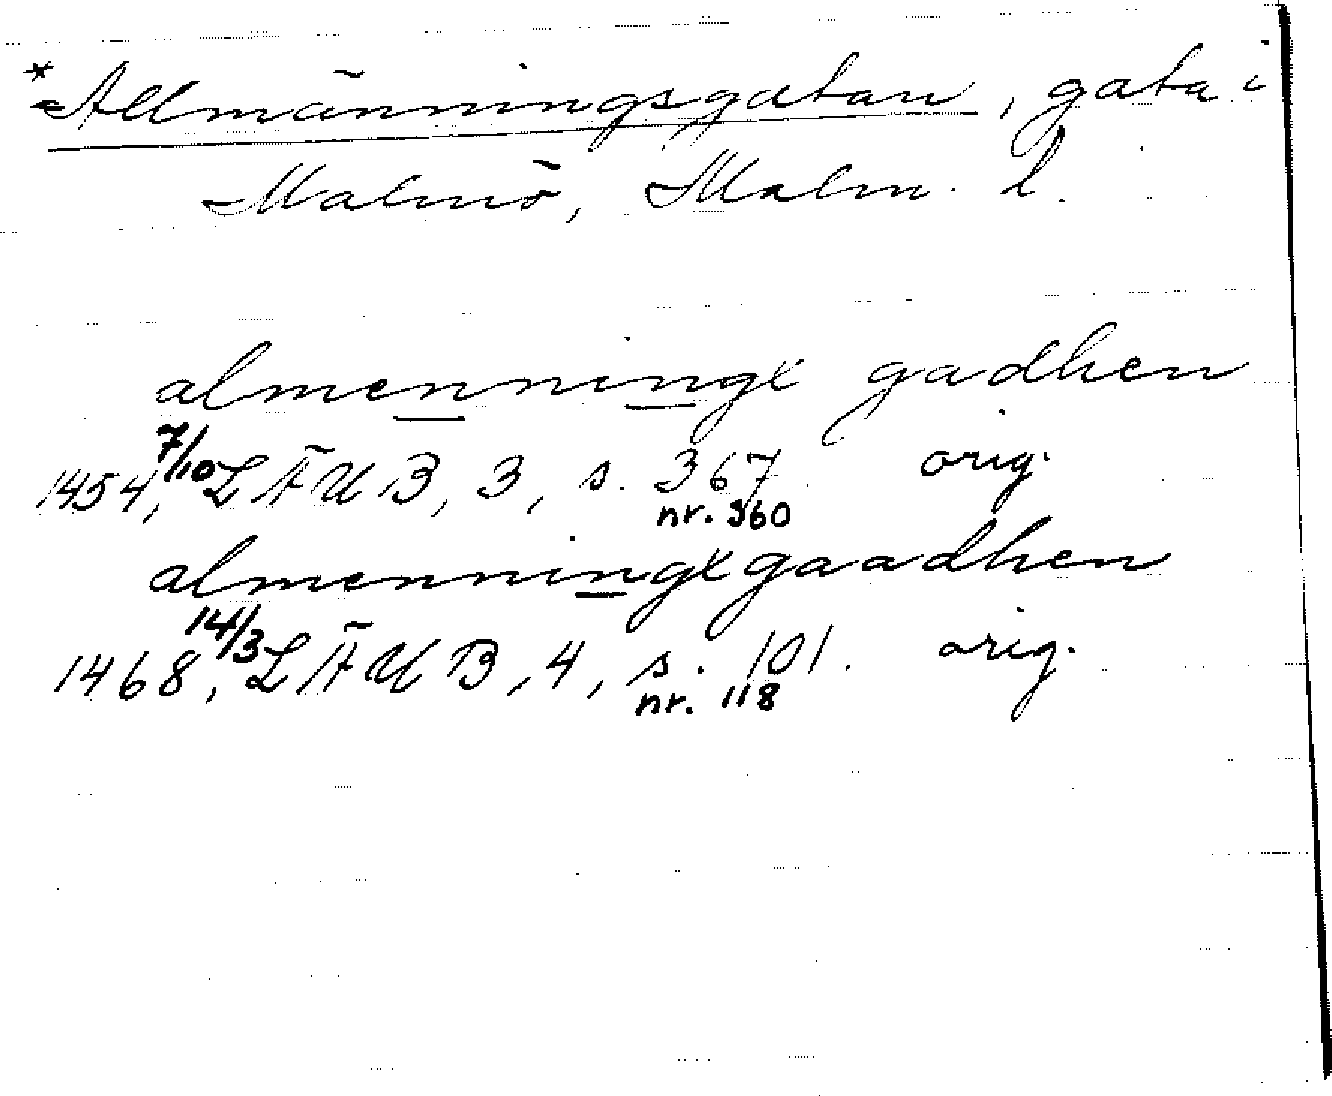 *Allmänningsgatan, gata i
Malmö, Malm. l.
almenningx gadhen
1454, 7/10 LÄUB, 3, s. 367. orig.
nr. 360
almenningxgaadhen
1468, 14/3 LÄUB, 4, s. 101. orig.
nr. 118